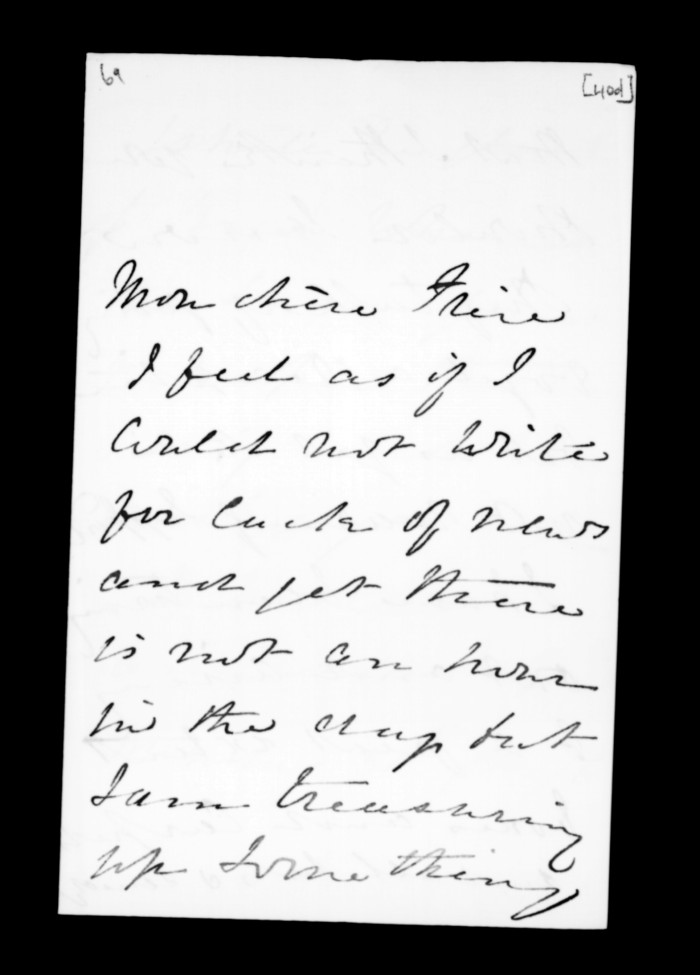 69 [40d]
Mon chère Frère
I feel as if I
Could not write
for lack of news
and yet there
is not an hour
in the day but
I am treasuring
up something